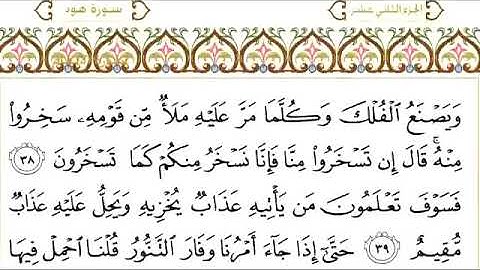 سورة هود
الجزء الثاني عشر
وَيَصْنَعُ ٱلْفُلْكَ وَكُلَّمَا مَرَّ عَلَيْهِ مَلَأٌ مِّن قَوْمِهِۦ سَخِرُوا۟
مِنْهُ ۚ قَالَ إِن تَسْخَرُوا۟ مِنَّا فَإِنَّا نَسْخَرُ مِنكُمْ كَمَا تَسْخَرُونَ ٣٨
فَسَوْفَ تَعْلَمُونَ مَن يَأْتِيهِ عَذَابٌ يُخْزِيهِ وَيَحِلُّ عَلَيْهِ عَذَابٌ
مُّقِيمٌ ٣٩ حَتَّىٰٓ إِذَا جَآءَ أَمْرُنَا وَفَارَ ٱلتَّنُّورُ قُلْنَا ٱحْمِلْ فِيهَا